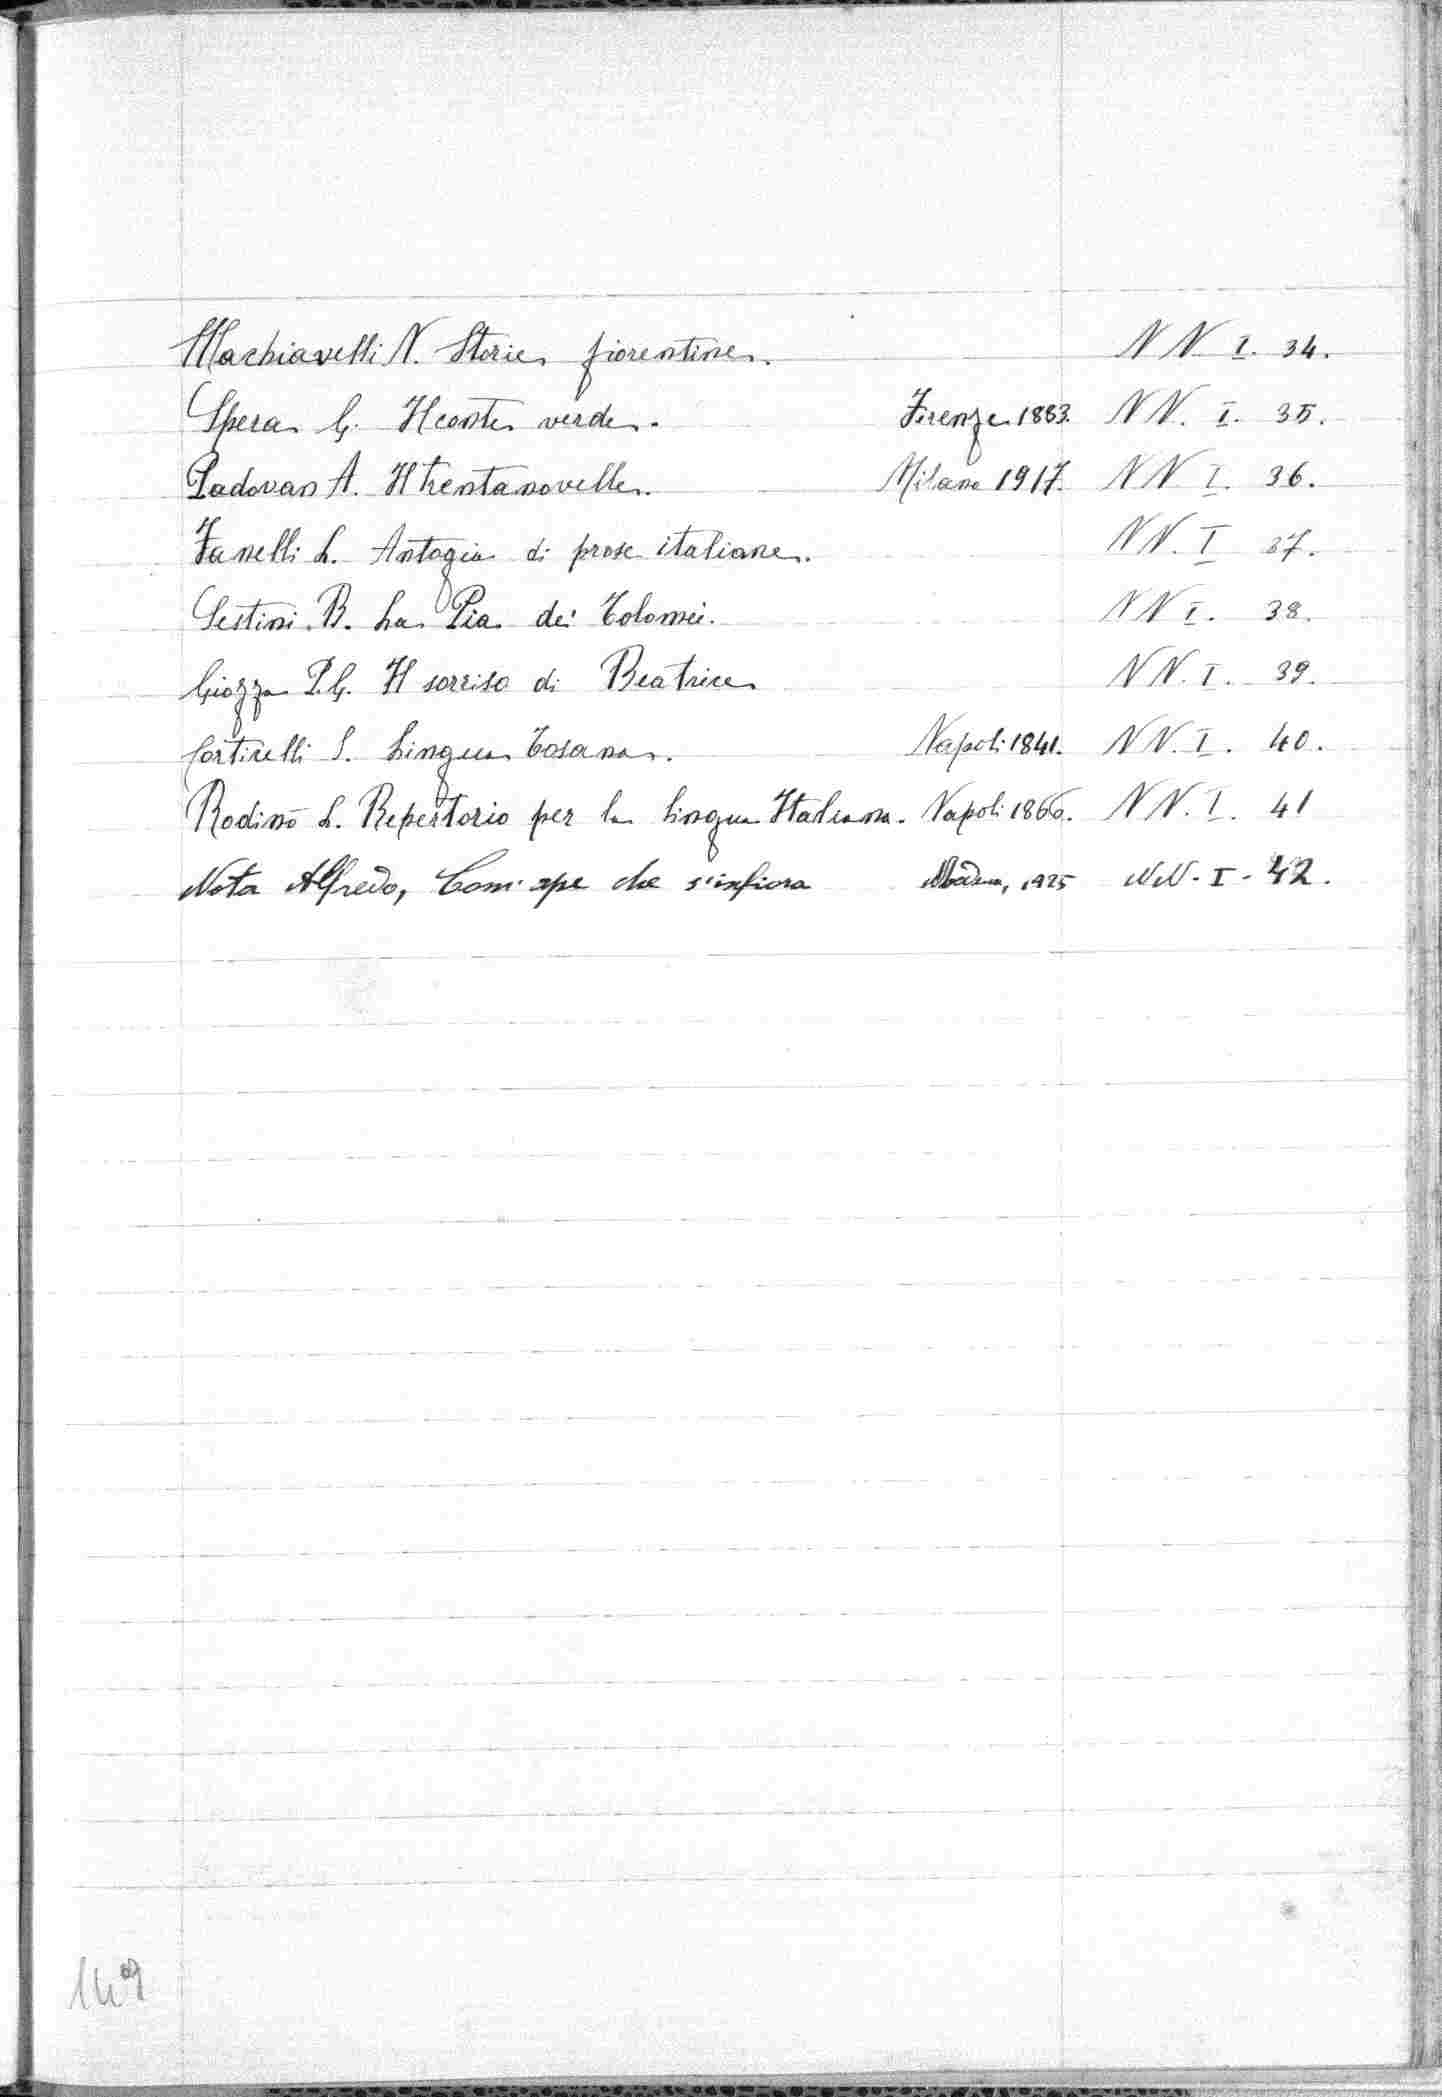 Machiavelli N. Storie fiorentine. N N I. 34.
Spera G. Il conte verde. Firenze 1883. N N. I. 35.
Padovan A. Il trentanovelle. Milano 1917. N N I. 36.
Fanelli L. Antogia di prose italiane. N N. I 37.
Sestini B. La Pia dei Tolomei. N N I. 38.
Giozza P. G. Il sorriso di Beatrice N N. I. 39.
Corticelli S. Lingua Tosana. Napoli 1841. N N. I. 40.
Rodinò L. Repertorio per la lingua Italiana. Napoli 1866. N N. I. 41
Nota Alfredo, Com' ape che s'infiora 1925 N N - I - 42.
149